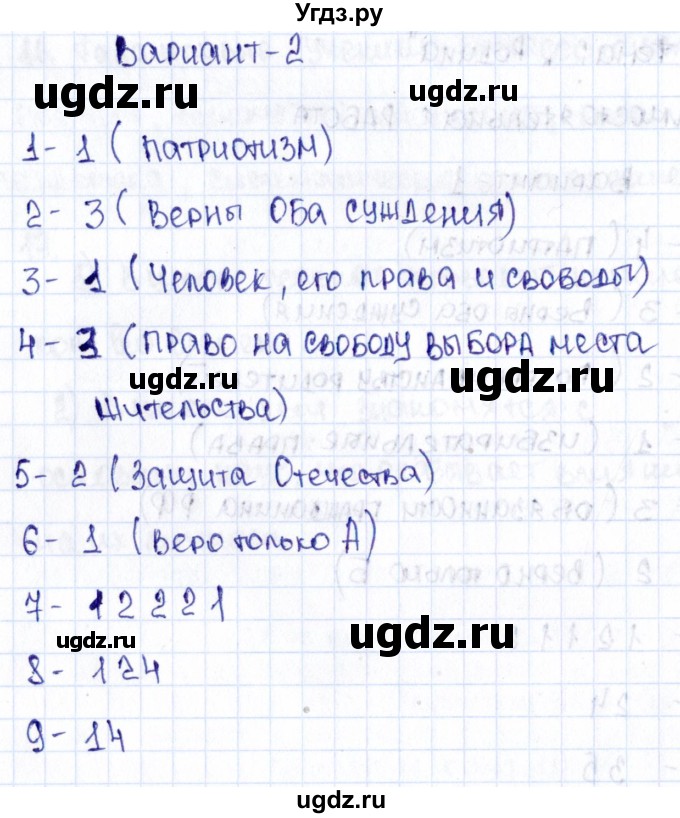 Угдз.ру
Вариант-2
ugdz.ru ugdz.ru
1- 1 ( патриотизм)
2- 3 ( верны оба суждения)
3- 1 (Человек, его права и свободы)
4- 3 (право на свободу выбора места
ugdz.ru ugdz.ru
жительства)
5- 2 (Защита Отечества)
6- 1 (веро только А)
7- 1 2 2 2 1
ugdz.ru ugdz.ru
8- 124
9- 14
ugdz.ru
ugdz.ru